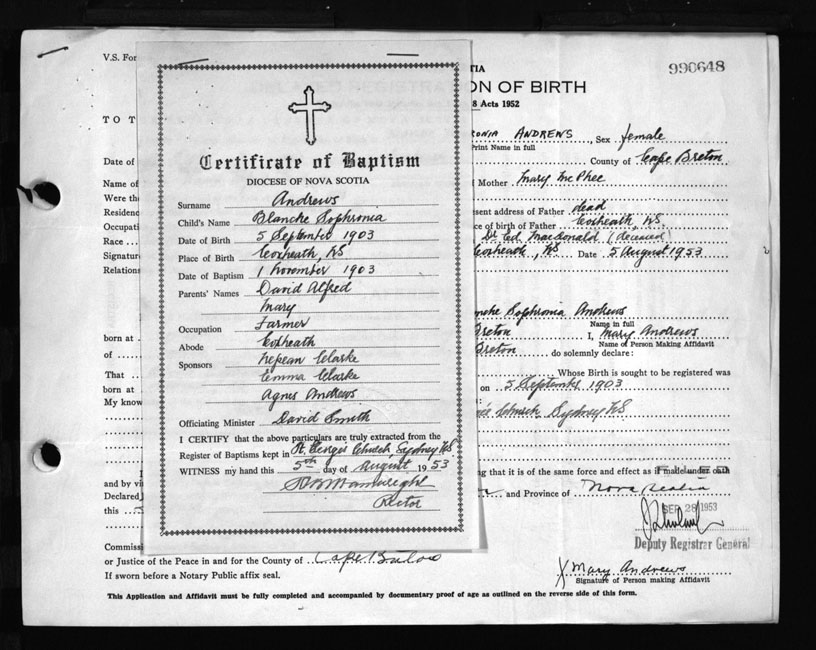 V.S. For
990648
TIA
ON OF BIRTH
8 Acts 1952
TO T
RONIA ANDREWS, Sex female
Print Name in full
Date of
County of Cape Breton
Name of
Mother Mary McPhee
Were the
Residenc
resent address of Father dead
Occupati
ce of birth of Father Coxheath, NS.
Race
Dr Ed. MacDonald (deceased)
Signatur
Coxheath, NS Date 5 August 1953
Relations
Certificate of Baptism
DIOCESE OF NOVA SCOTIA
Surname Andrews
Child's Name Blanche Sophronia
Date of Birth 5 September 1903
Place of Birth Coxheath, NS
Date of Baptism 1 November 1903
Parents' Names David Alfred
Mary
Occupation Farmer
Abode Coxheath
Sponsors Nepean Clarke
Emma Clarke
Agnes Andrews
Officiating Minister David Smith
I CERTIFY that the above particulars are truly extracted from the
Register of Baptisms kept in St. George's Church, Sydney NS
WITNESS my hand this 5th day of August 1953
Rector
nche Sophronia Andrews
Name in full
born at
Breton I, Mary Andrews
Name of Person Making Affidavit
of
Breton do solemnly declare:
That
Whose Birth is sought to be registered was
born at
on 5 September 1903
My know
Church Sydney NS
I
ing that it is of the same force and effect as if made under oath
and by vi
Declared
and Province of Nova Scotia
this
SEP 28 1953
Deputy Registrar General
Commissi
or Justice of the Peace in and for the County of Cape Breton
If sworn before a Notary Public affix seal.
X Mary Andrews
Signature of Person making Affidavit
This Application and Affidavit must be fully completed and accompanied by documentary proof of age as outlined on the reverse side of this form.